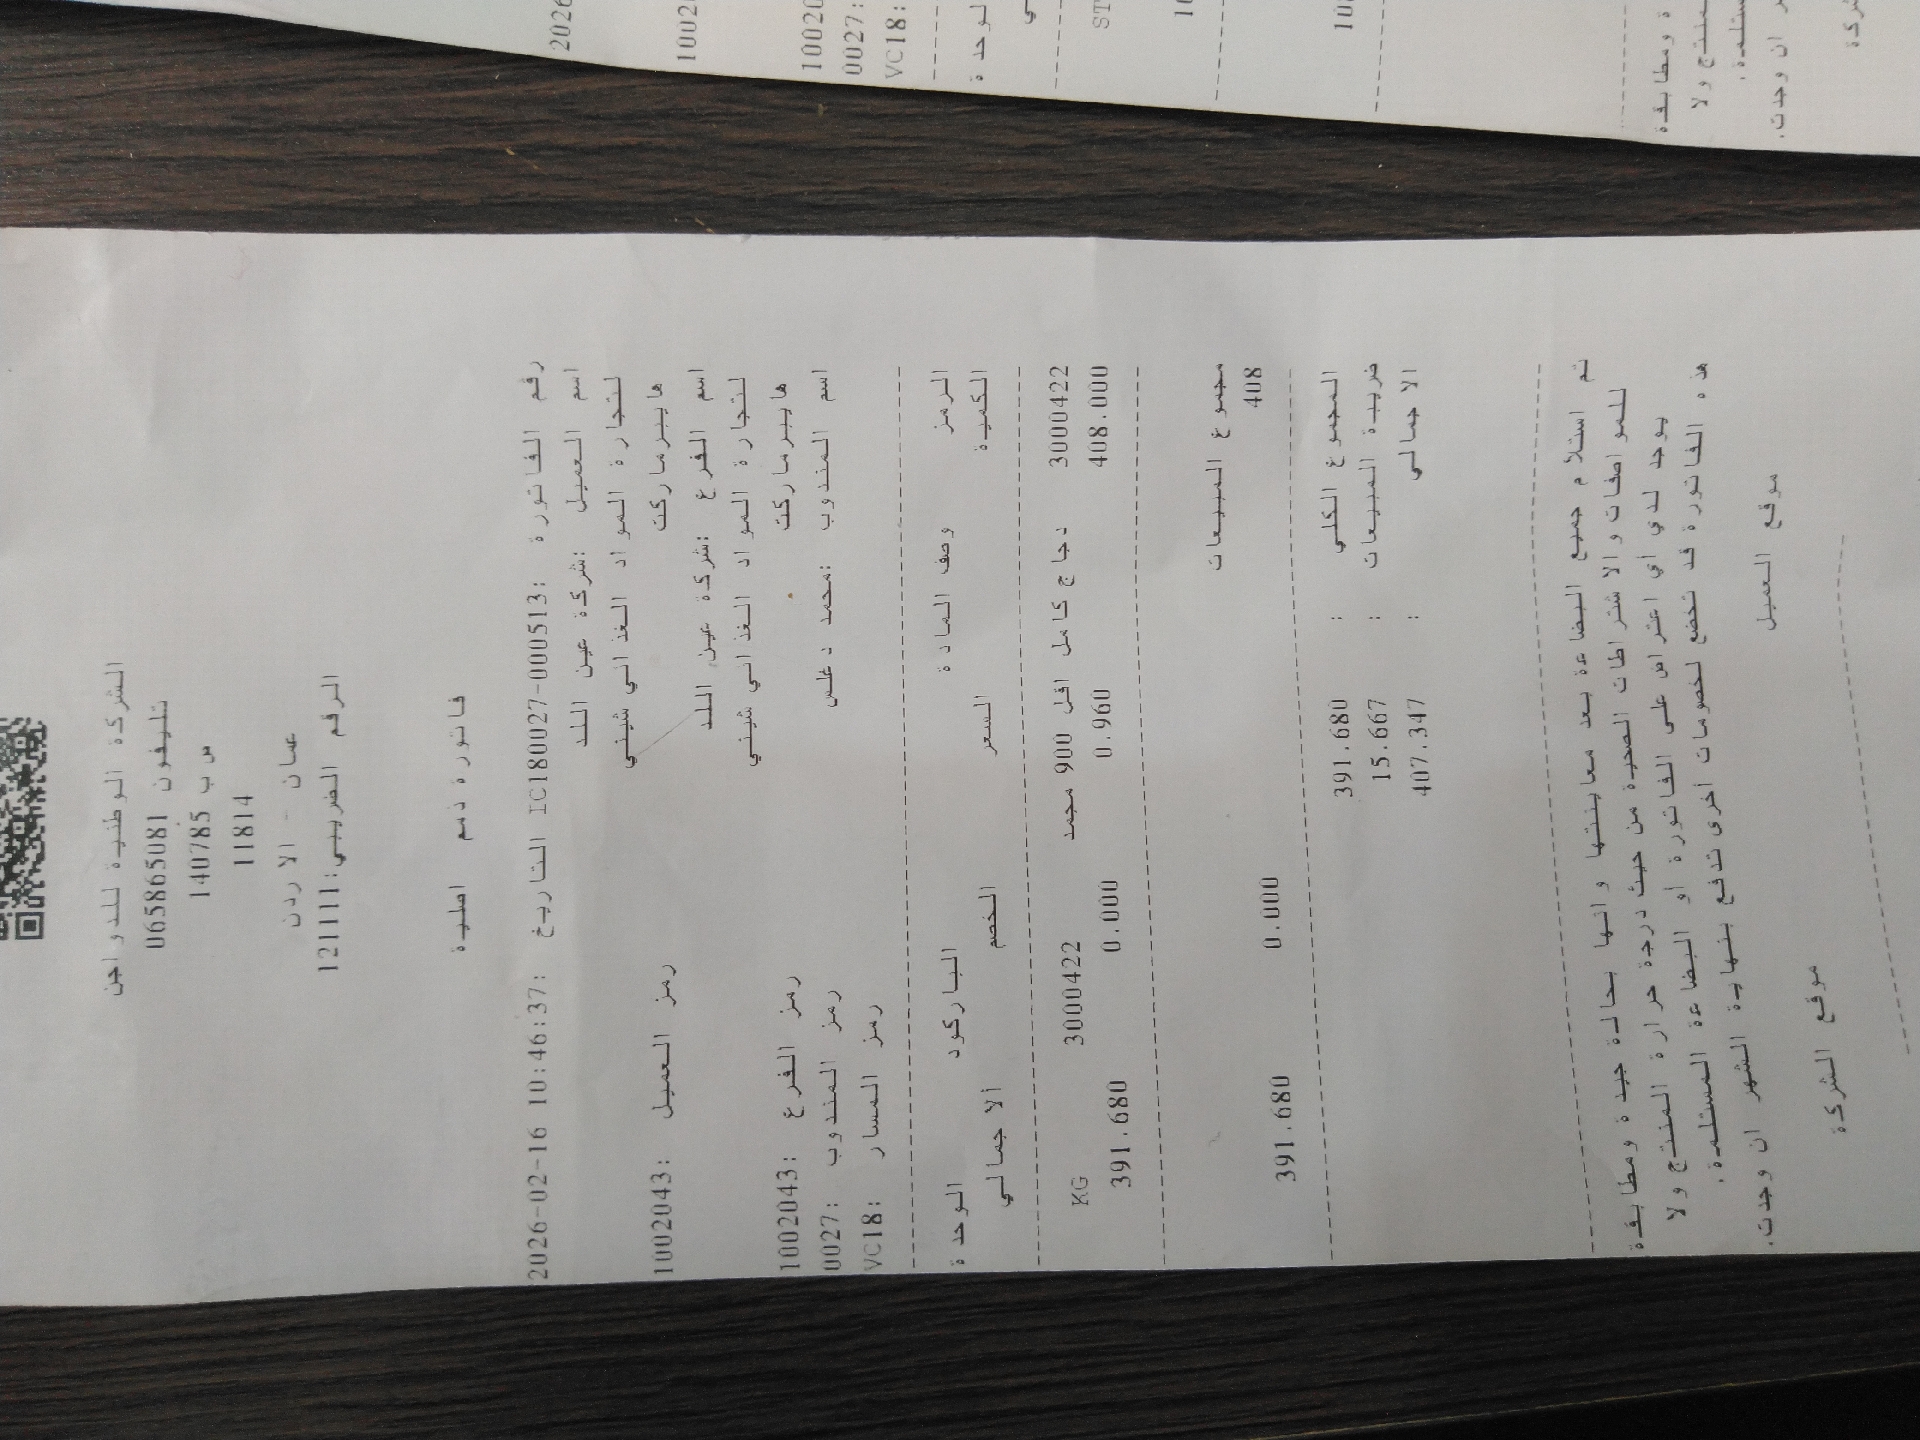 الشركة الوطنية للدواجن
تليفون 065865081
ص ب 140785
11814
عمان - الاردن
الرقم الضريبي:121111
فاتورة ذمم اصلية
رقم الفاتورة :IC180027-000513 التاريخ :2026-02-16 10:46:37
اسم العميل :شركة عين اللد
لتجارة المواد الغذائي شيني
هايبرماركت رمز العميل :1002043
اسم الفرع :شركة عين اللد
لتجارة المواد الغذائي شيني
هايبرماركت رمز الفرع :1002043
اسم المندوب :محمد دغلس رمز المندوب :0027
رمز المسار :VC18
الرمز وصف المادة الباركود الوحدة
الكمية السعر الخصم الاجمالي
3000422 دجاج كامل اقل 900 مجمد 3000422 KG
408.000 0.960 0.000 391.680
مجموع المبيعات
408 0.000 391.680
المجموع الكلي : 391.680
ضريبة المبيعات : 15.667
الاجمالي : 407.347
تم استلام جميع البضاعة بعد معاينتها وانها بحالة جيدة ومطابقة
للمواصفات والاشتراطات الصحية من حيث درجة حرارة المنتج ولا
يوجد لدي اي اعتراض على الفاتورة أو البضاعة المستلمة.
هذه الفاتورة قد تخضع لخصومات أخرى تدفع بنهاية الشهر ان وجدت.
موقع العميل موقع الشركة
2026
1002
10020
0027:
VC18:
الوحدة
ST
10
100
ة ومطابقة
منتج ولا
ستلمة.
ر ان وجدت.